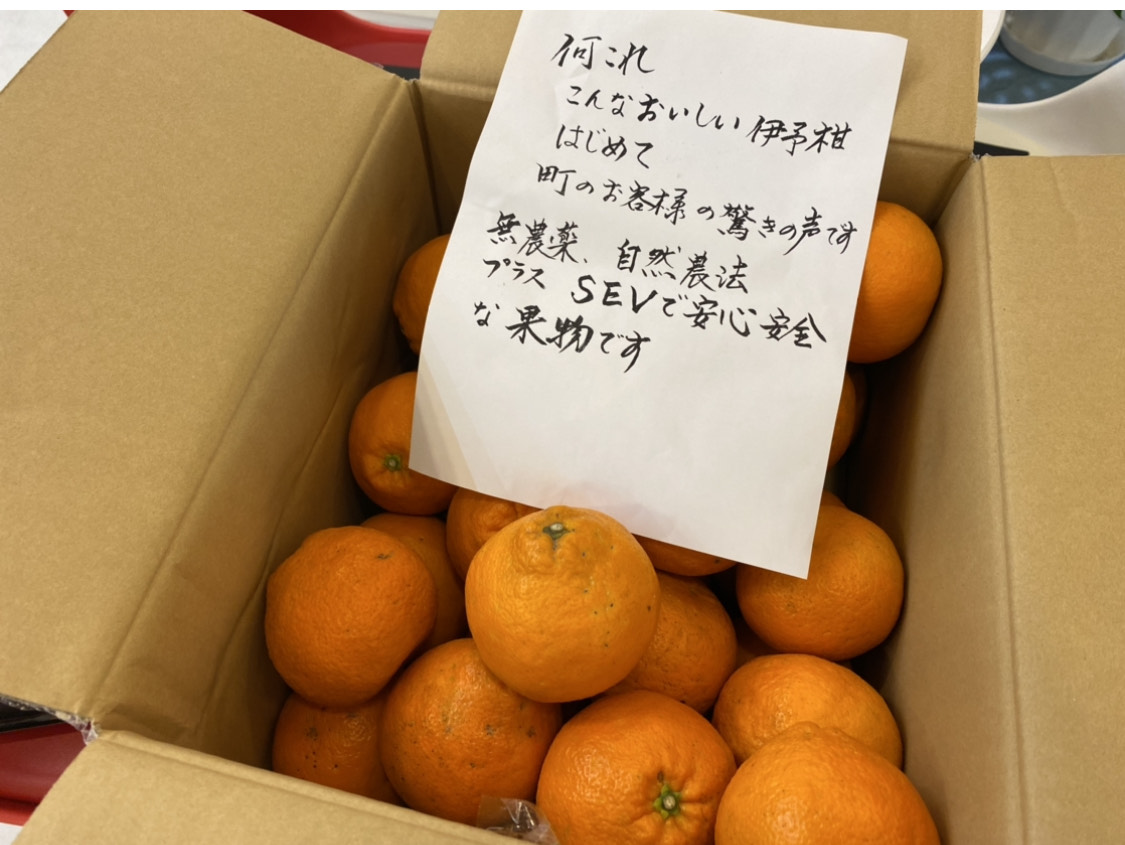 何これ
こんなおいしい伊予柑
はじめて
町のお客様の驚きの声です
無農薬、自然農法
プラス SEVで安心安全
な果物です